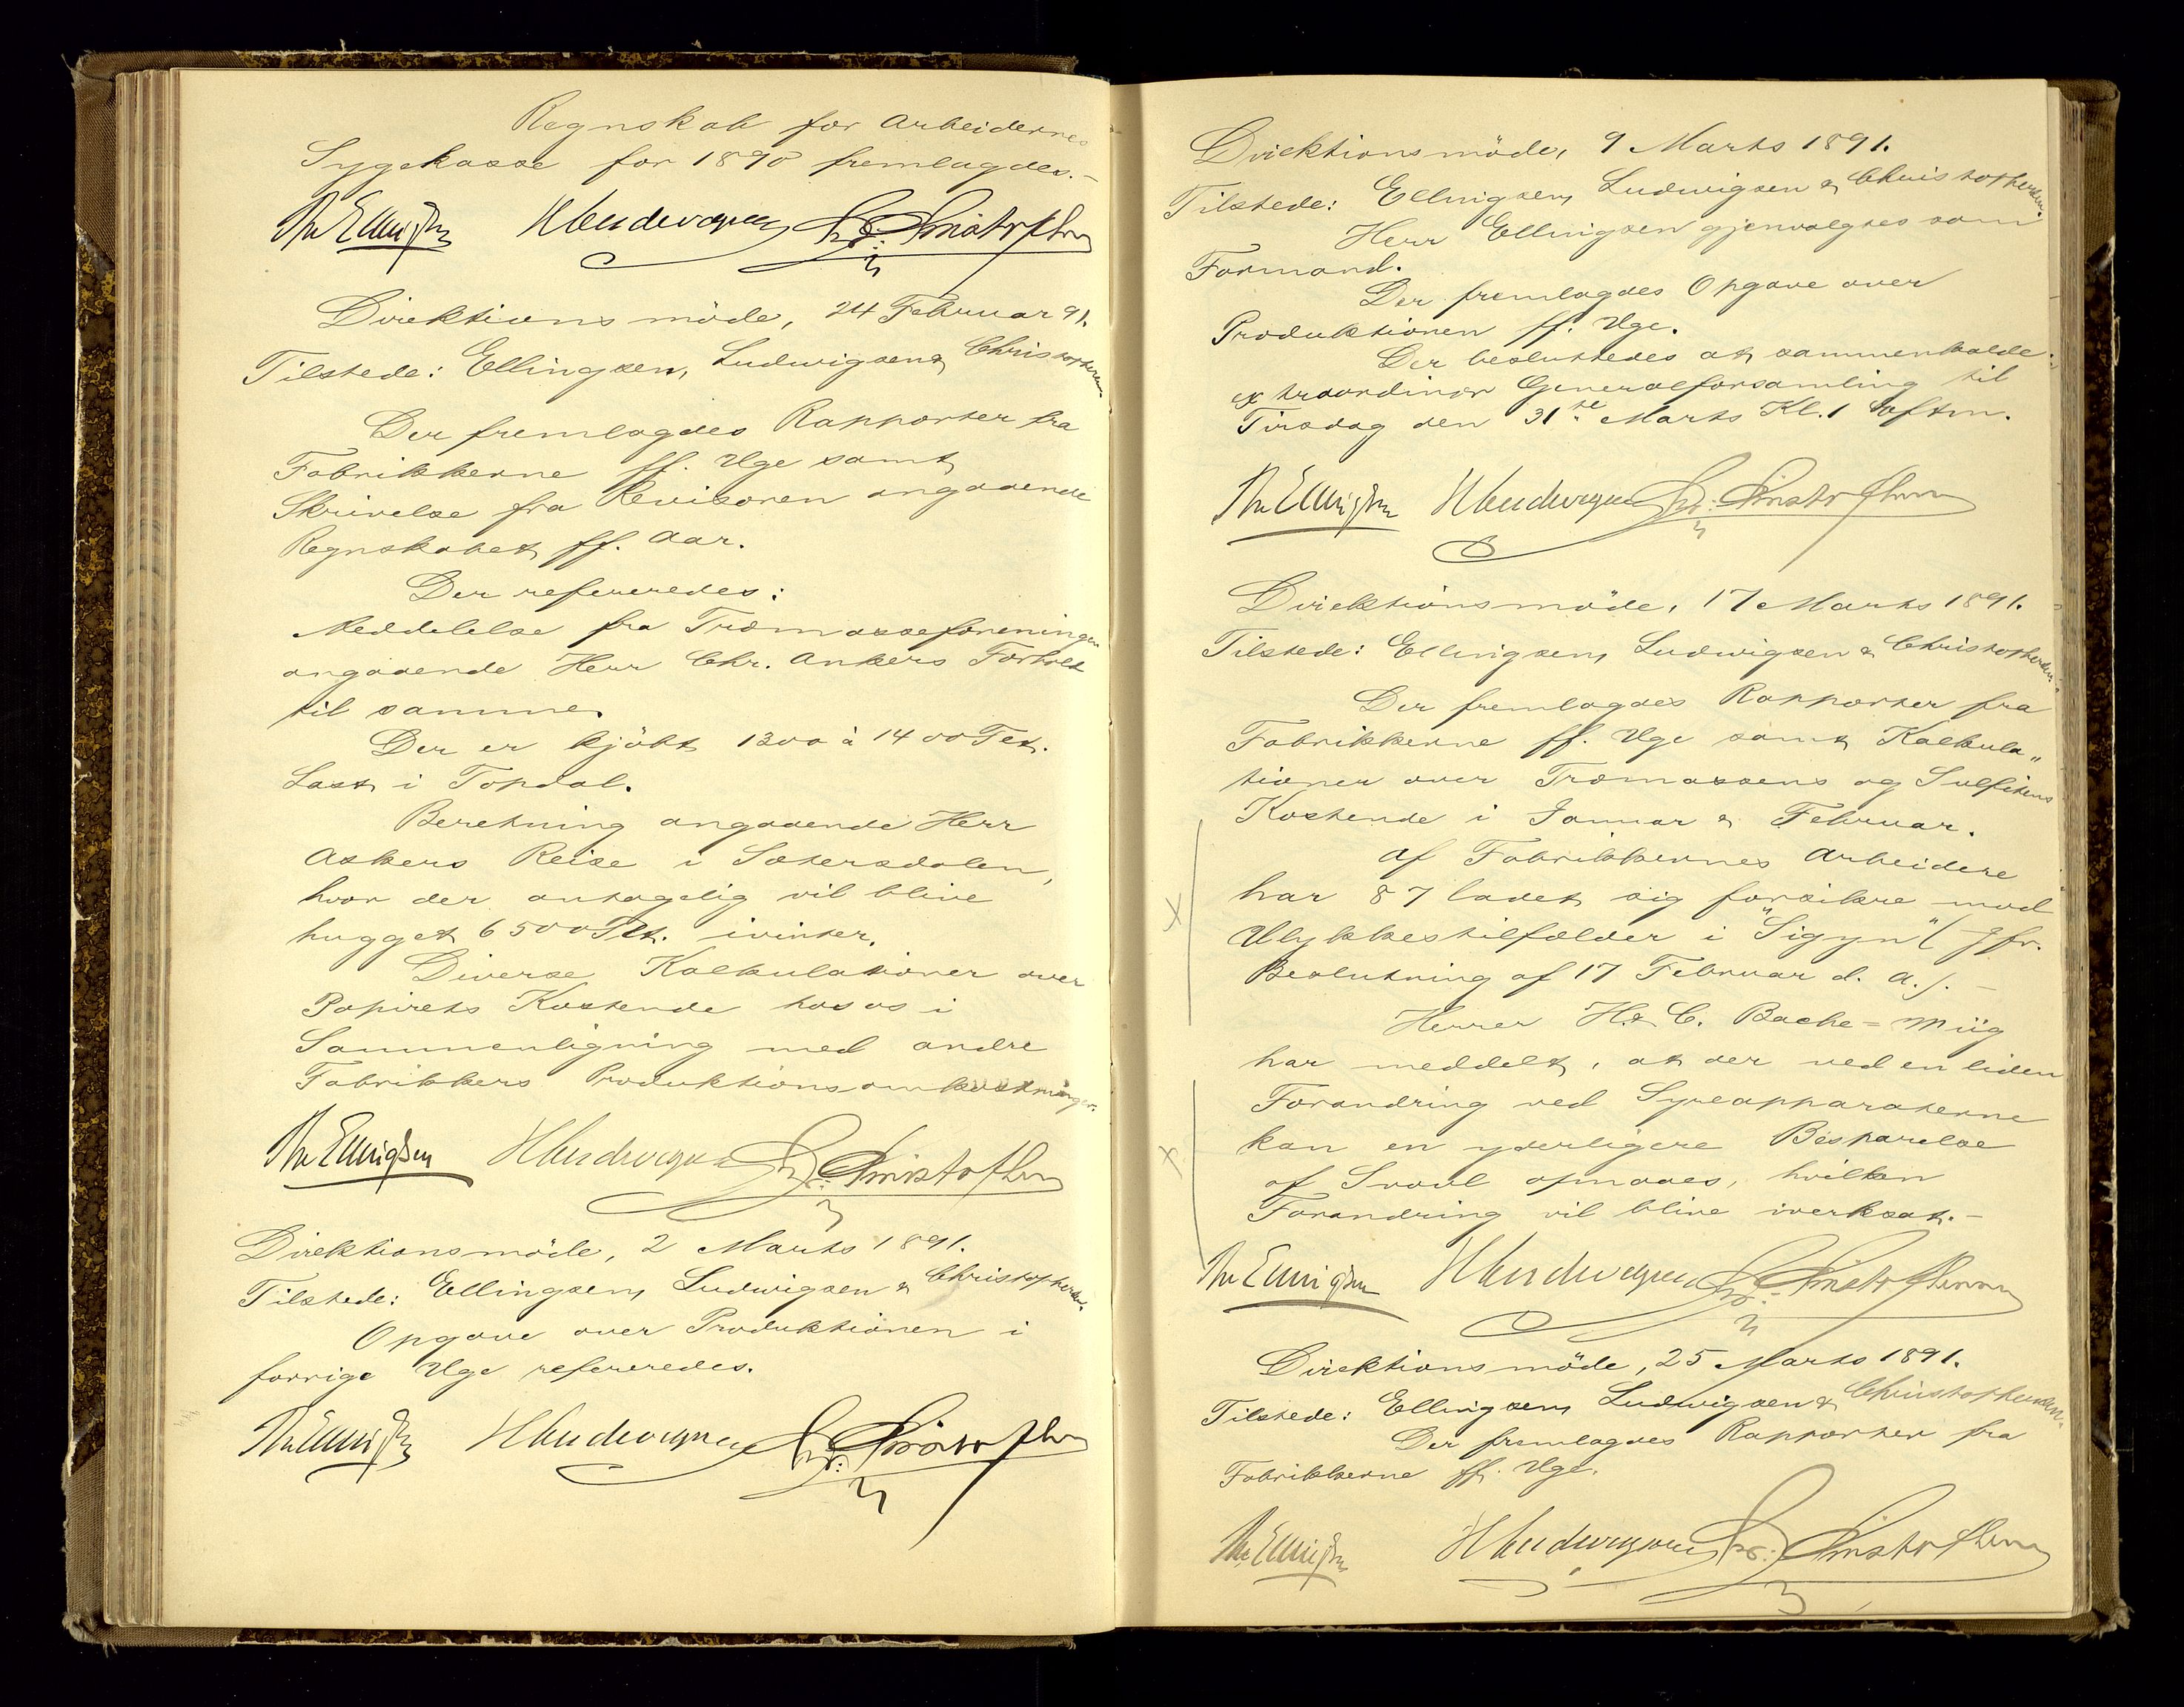 Regnskab for Arbeidernes
Sygekasse for 1890 fremlagdes.-
Th Ellingsen H Ludwigsen Chr. Christophersen
Direktionsmöde, 24 Februar 91.
Tilstede: Ellingsen, Ludwigsen & Christophersen
Der fremlagdes Rapporter fra
Fabrikkerne ff. Uge samt
Skrivelse fra Revisoren angaaende
Regnskabet ff. Aar.
Der refereredes:
Meddelelse fra Træmasseforeningen
angaaende Herr Chr. Ankers Forhold
til samme.
Der er kjöbt 1300 à 1400 Tet.
Last i Topdal.
Beretning angaaende Herr
Askers Reise i Sætersdalen,
hvor der antagelig vil blive
hugget 6500 Tet. ivinter.
Diverse Kalkulationer over
Papirets Kostende hos os i
Sammenligning med andre
Fabrikkers Produktionsomkostninger.
Th Ellingsen H Ludwigsen Chr. Christophersen
Direktionsmöde, 2 Marts 1891.
Tilstede: Ellingsen, Ludwigsen & Christophersen.
Opgave over Produktionen i
forrige Uge refereredes.
Th Ellingsen H Ludwigsen Chr. Christophersen
Direktionsmöde, 9 Marts 1891.
Tilstede: Ellingsen, Ludwigsen & Christophersen.
Herr Ellingsen gjenvalgtes som
Formand.
Der fremlagdes Opgave over
Produktionen ff. Uge.
Der besluttedes at sammenkalde
extraordinær Generalforsamling til
Tirsdag den 31te Marts Kl. 1 Eftm.
Th Ellingsen H Ludwigsen Chr. Christophersen
Direktionsmöde, 17 Marts 1891.
Tilstede: Ellingsen, Ludwigsen & Christophersen.
Der fremlagdes Rapporter fra
Fabrikkerne ff. Uge samt Kalkula„
tioner over Træmassens og Sulfitens
Kostende i Januar & Februar.
Af Fabrikkernes Arbeidere
har 87 ladet sig forsikre mod
Ulykkestilfælder i "Sigyn" (Jfr.
Beslutning af 17 Februar d. A.). -
Herrer H. & C. Bache=Wiig
har meddelt, at der ved en liden
Forandring ved Syreapparaterne
kan en yderligere Besparelse
af Svovl opnaaes, hvilken
Forandring vil blive iverksat.-
Th Ellingsen H Ludwigsen Chr. Christophersen
Direktionsmöde, 25 Marts 1891.
Tilstede: Ellingsen, Ludwigsen & Christophersen.
Der fremlagdes Rapporter fra
Fabrikkerne ff. Uge.
Th Ellingsen H Ludwigsen Chr. Christophersen